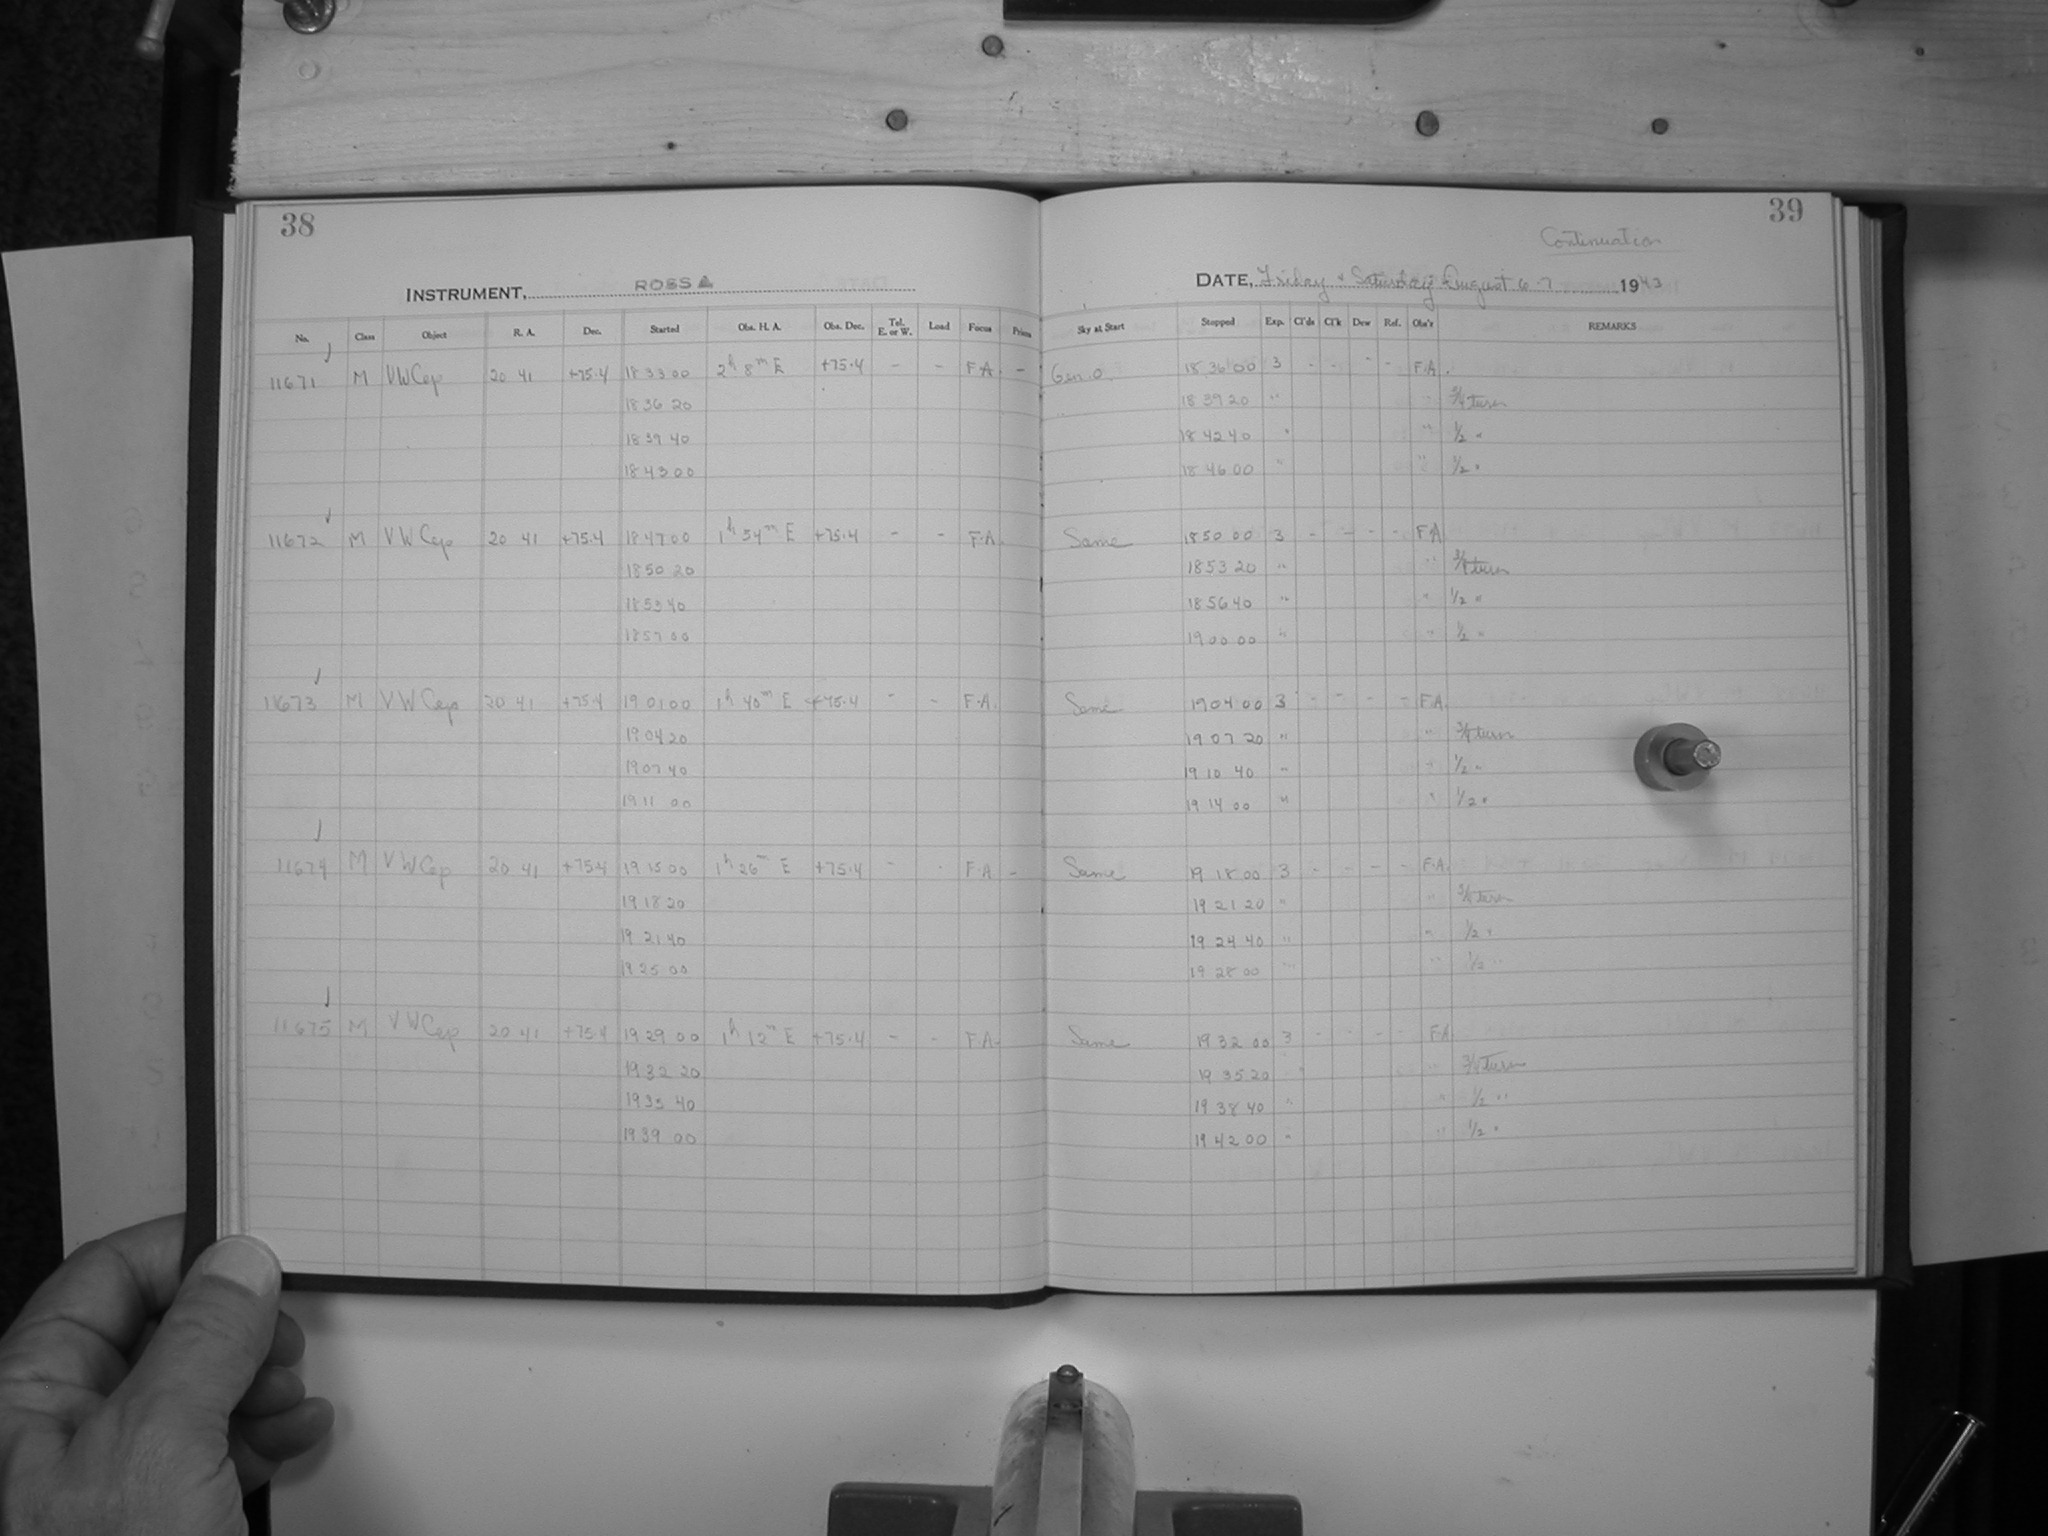 38
INSTRUMENT, ROSS A
No. Class Object R. A. Dec. Started Obs. H. A. Obs. Dec. Tel. E. or W. Load Focus Prism
11671 M VW Cep 20 41 +75.4 18 33 00 2h 8m E +75.4 - - F.A. -
18 36 20
18 39 40
18 43 00
11672 M VW Cep 20 41 +75.4 18 47 00 1h 54m E +75.4 - - F.A.
18 50 20
18 53 40
18 57 00
11673 M VW Cep 20 41 +75.4 19 01 00 1h 40m E +75.4 - - F.A.
19 04 20
19 07 40
19 11 00
11674 M VW Cep 20 41 +75.4 19 15 00 1h 26m E +75.4 - - F.A. -
19 18 20
19 21 40
19 25 00
11675 M VW Cep 20 41 +75.4 19 29 00 1h 12m E +75.4 - - F.A.
19 32 20
19 35 40
19 39 00
39
Continuation
DATE, Friday + Saturday August 6-7 1943
Sky at Start Stopped Exp. Cl'ds Cl'k Dew Ref. Obs'r REMARKS
Gen. 0. 18 36 00 3 - - - - F.A.
18 39 20 " " 3/4 turn
18 42 40 " " 1/2 "
18 46 00 " " 1/2 "
Same 18 50 00 3 - - - - F.A.
18 53 20 " " 3/4 turn
18 56 40 " " 1/2 "
19 00 00 " " 1/2 "
Same 19 04 00 3 - - - - F.A.
19 07 20 " " 3/4 turn
19 10 40 " " 1/2 "
19 14 00 " " 1/2 "
Same 19 18 00 3 - - - - F.A.
19 21 20 " " 3/4 turn
19 24 40 " " 1/2 "
19 28 00 " " 1/2 "
Same 19 32 00 3 - - - - F.A.
19 35 20 " " 3/4 turn
19 38 40 " " 1/2 "
19 42 00 " " 1/2 "